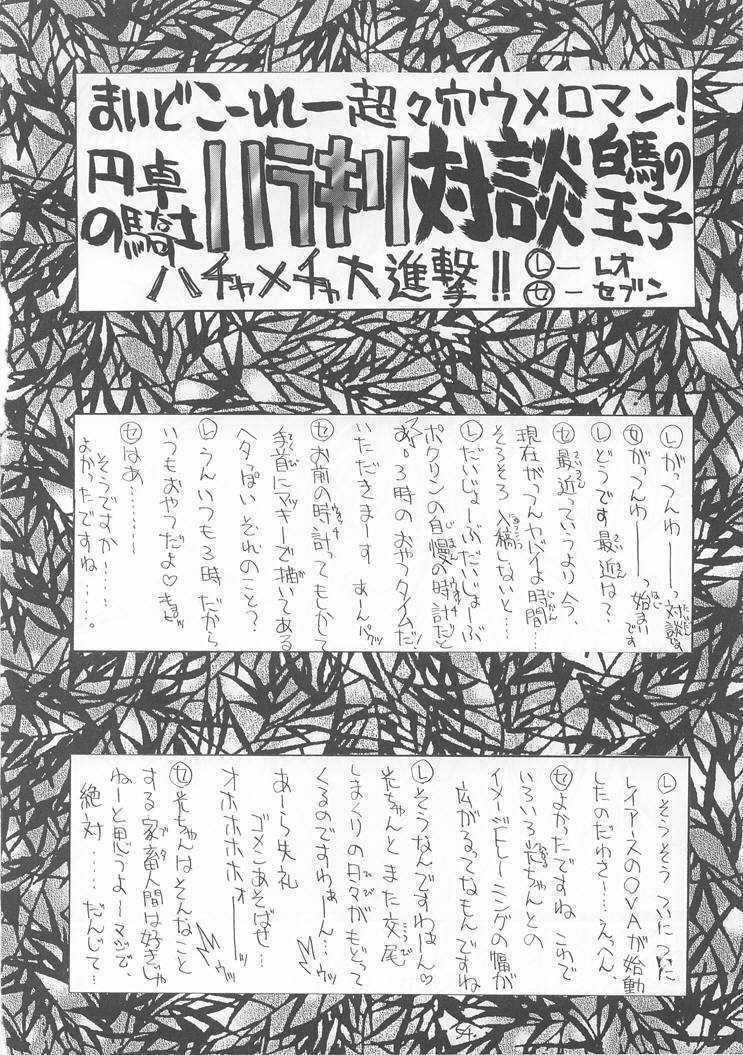 まいどこーれー超々穴ウメロマン!
円卓の騎士 ハラキリ対談 白馬の王子
ハチャメチャ大進撃!!
Ⓛ― レオ
㋝― セブン
Ⓛがっつんわ――っ対談は
㋝がっつんわ――っ始まいです
Ⓛどうです最近は?
㋝最近っていうより今、
現在がっつんヤバイよ時間…
そろそろ入稿しないと…
Ⓛだいじょーぶだいじょーぶ
ボクリンの自慢の時計だと
あ、3時のおやつタイムだ!
いただきまーす あーんパクッ
㋝お前の時計ってもしかして
手首にマッキーで描いてある
ヘタっぴい それのこと?
Ⓛうんいつも3時だから
いつもおやつだよ♡
㋝はぁ………
そうですか……
よかったですね
……。
Ⓛそうそう ついについに
レイアースのOVAが始動
したのだわさ!…えっへん
㋝よかったですね これで
いろいろ光ちゃんとの
イメージトレーニングの幅が
広がるってなもんですね
Ⓛそうなんですわほーん♡
光ちゃんと また交尾
しまくりの日々がもどって
くるのですわぁーん…ウッ
あーら失礼
ゴメンあそばせ…
オホホホホォ――ウッ
㋝光ちゃんはそんなこと
する家畜人間は好きじゃ
ねーと思うよーマジで、
絶対……だんじて…
54